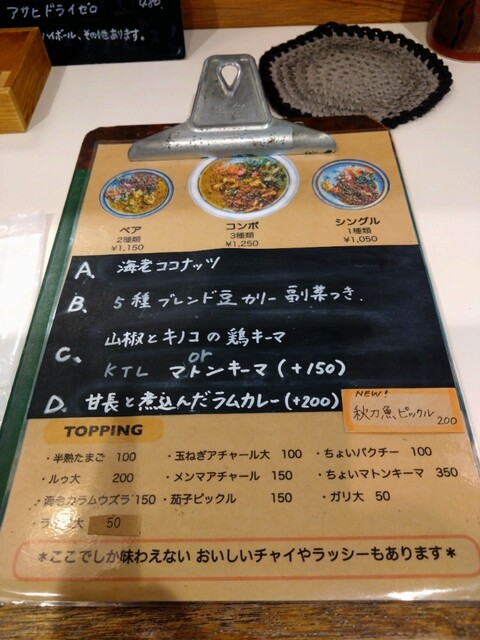 アサヒドライゼロ 480.
ハイボール、その他あります。
ペア
2種類
¥1,150
コンボ
3種類
¥1,250
シングル
1種類
¥1,050
A. 海老ココナッツ
B. 5種ブレンド豆カリー 副菜つき.
C. 山椒とキノコの鶏キーマ
or
KTL マトンキーマ (+150)
D. 甘長と煮込んだラムカレー(+200)
NEW!
秋刀魚ピックル
200
TOPPING
・半熟たまご 100 ・玉ねぎアチャール大 100 ・ちょいパクチー 100
・ルゥ大 200 ・メンマアチャール 150 ・ちょいマトンキーマ 350
カラムウズラ 150 ・茄子ピックル 150 ・ガリ大 50
大 50
＊ここでしか味わえない おいしいチャイやラッシーもあります＊